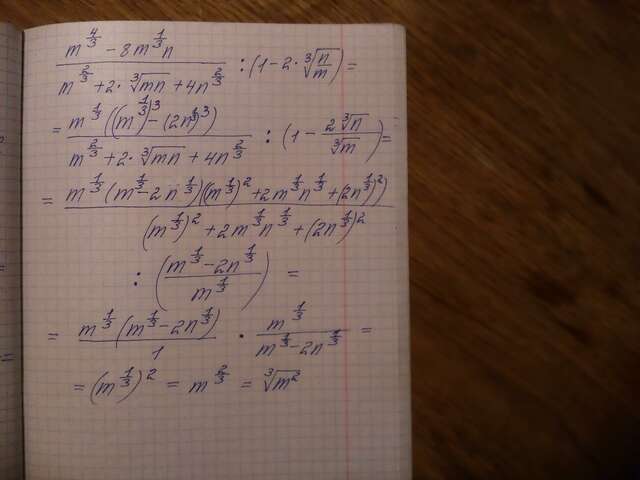 (m^{4/3} - 8m^{1/3}n)/(m^{2/3} + 2·∛(mn) + 4n^{2/3}) : (1 - 2·∛(n/m)) =
= (m^{1/3}((m^{1/3})^3 - (2n^{1/3})^3))/(m^{2/3} + 2·∛(mn) + 4n^{2/3}) : (1 - (2∛n)/(∛m)) =
= (m^{1/3}(m^{1/3} - 2n^{1/3})((m^{1/3})^2 + 2m^{1/3}n^{1/3} + (2n^{1/3})^2))/((m^{1/3})^2 + 2m^{1/3}n^{1/3} + (2n^{1/3})^2)
: ((m^{1/3} - 2n^{1/3})/(m^{1/3})) =
= (m^{1/3}(m^{1/3} - 2n^{1/3}))/1 · (m^{1/3})/(m^{1/3} - 2n^{1/3}) =
= (m^{1/3})^2 = m^{2/3} = ∛(m^2)